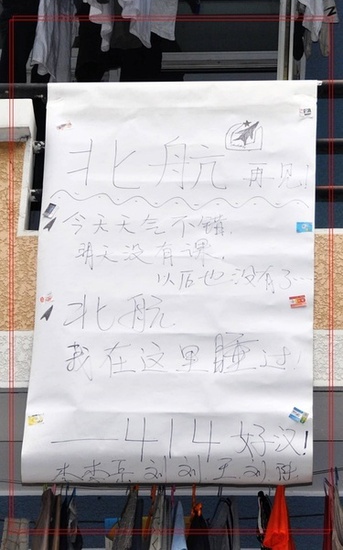 北航 再见!
今天天气不错,
明天没有课,
以后也没有了…
北航
我在这里睡过!
——414 好汉!
李李乐刘刘王刘陈